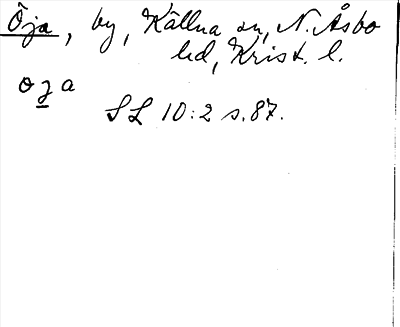 Öja, by, Källna sn, N. Åsbo
hd, Krist. l.
oza
SL 10:2 s.87.